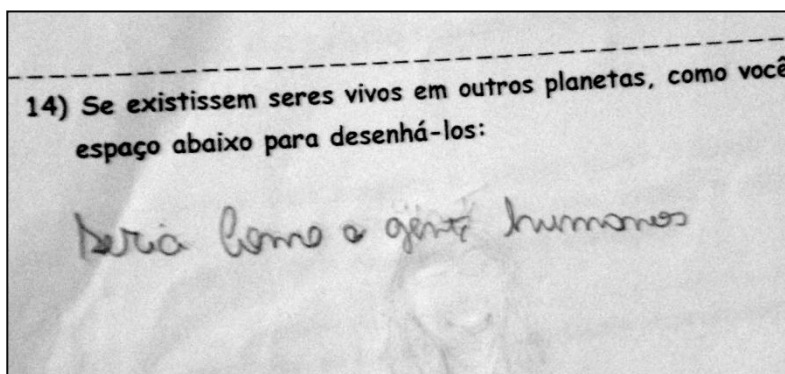 14) Se existissem seres vivos em outros planetas, como você
espaço abaixo para desenhá-los:
Seria como a gente humanos